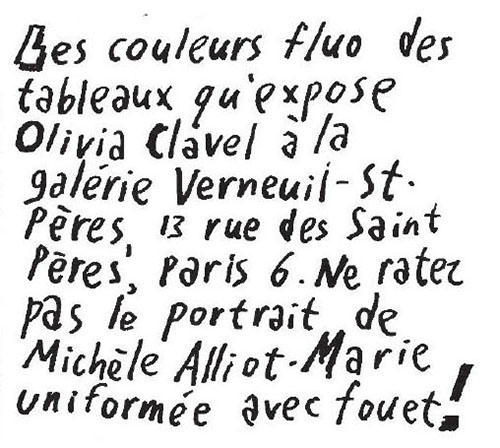 Les couleurs fluo des
tableaux qu'expose
Olivia Clavel à la
galérie Verneuil-St.
Pères, 13 rue des Saint
Pères, Paris 6. Ne ratez
pas le portrait de
Michèle Alliot-Marie
uniformée avec fouet!